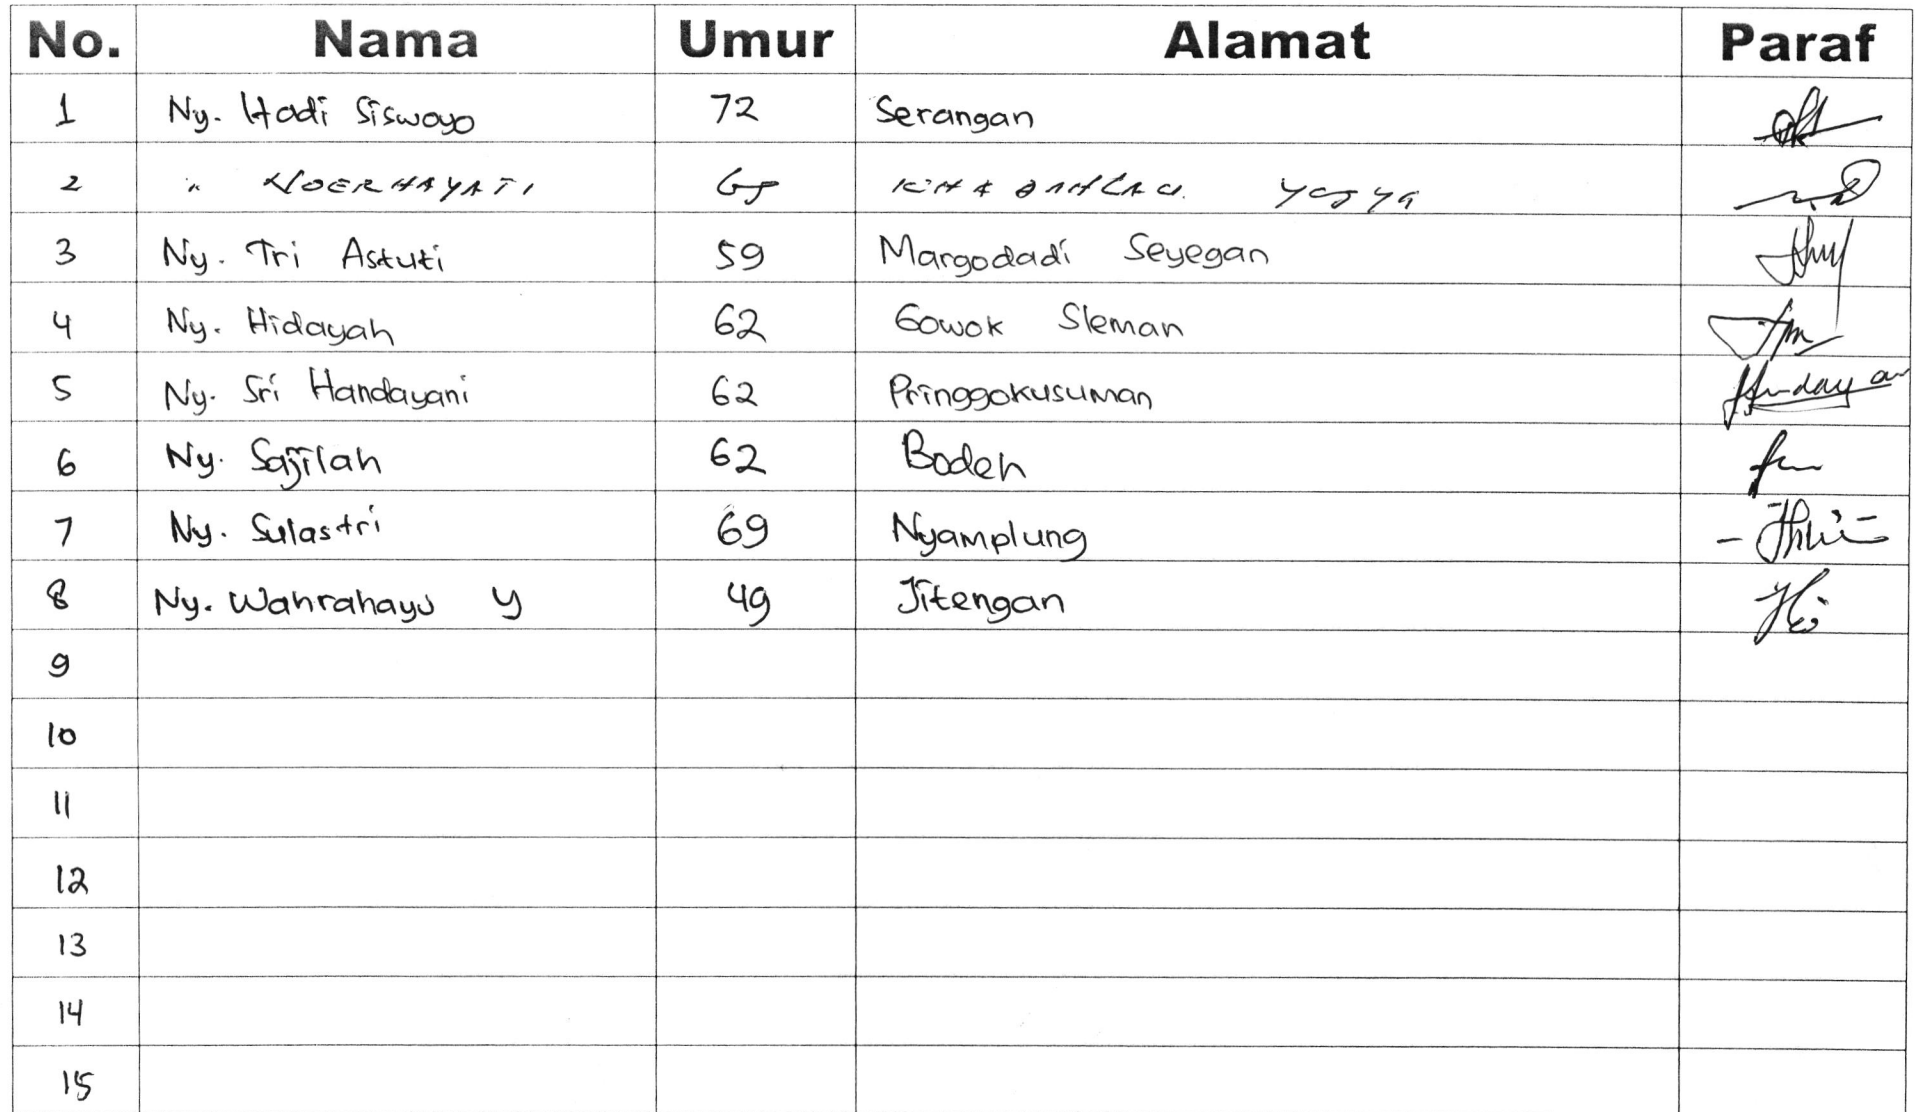 No. Nama Umur Alamat Paraf
1 Ny. Hadi Siswoyo 72 Serangan
2 " NOERHAYATI
3 Ny. Tri Astuti 59 Margodadi Seyegan
4 Ny. Hidayah 62 Gowok Sleman
5 Ny. Sri Handayani 62 Pringgokusuman
6 Ny. Sajilah 62 Bodeh
7 Ny. Sulastri 69 Nyamplung
8 Ny. Wahrahayu Y 49 Jitengan
9
10
11
12
13
14
15